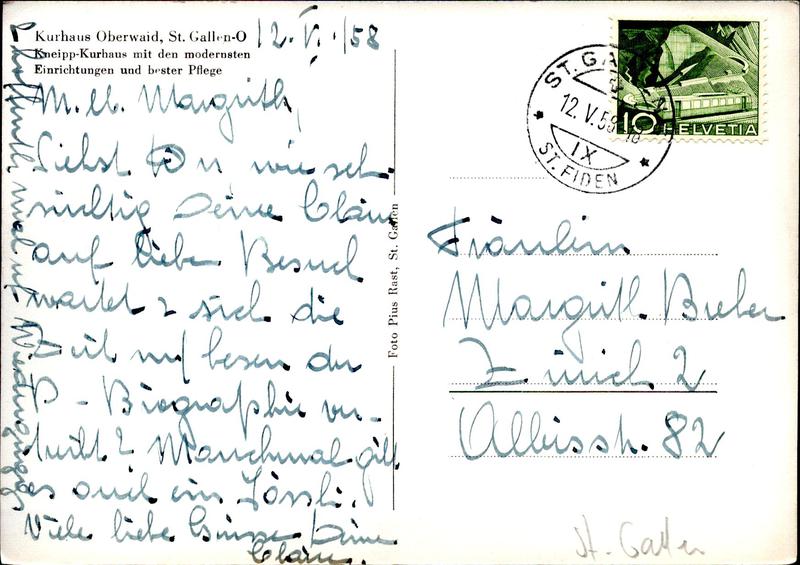 Kurhaus Oberwaid, St. Gallen-O
Kneipp-Kurhaus mit den modernsten
Einrichtungen und bester Pflege
12. V. /58
M. lb. Margrith,
Siehst Du wie seh-
süchtig Deine Cläre
auf lieben Besuch
wartet & sich die
Zeit mit lesen der
P - Biographie ver-
treibt? Manchmal gilt
es auch ein Jössli.
Viele liebe Grüsse Deine
Cläre.
hoffentlich mal auf Wiedersehen
Foto Pius Rast, St. Gallen
ST. GALLEN
12. V. 58
IX
ST. FIDEN
10 HELVETIA
Fräulein
Margrith Bieber
Zürich 2
Albisstr. 82
St. Gallen